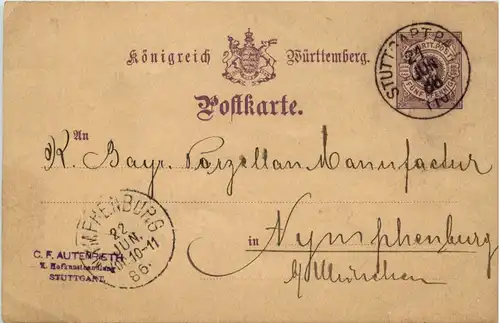 Königreich Württemberg.
Postkarte.
STUTTGART
21
JUN
86
FÜNF PFENNIG
An
K. Bayr. Porzellan Manufactur
in Nymphenburg
b/München
NYMPHENBURG
22
JUN.
10-11
86.
C. F. AUTENRIETH
K. Hofkunsthandlung
STUTTGART.